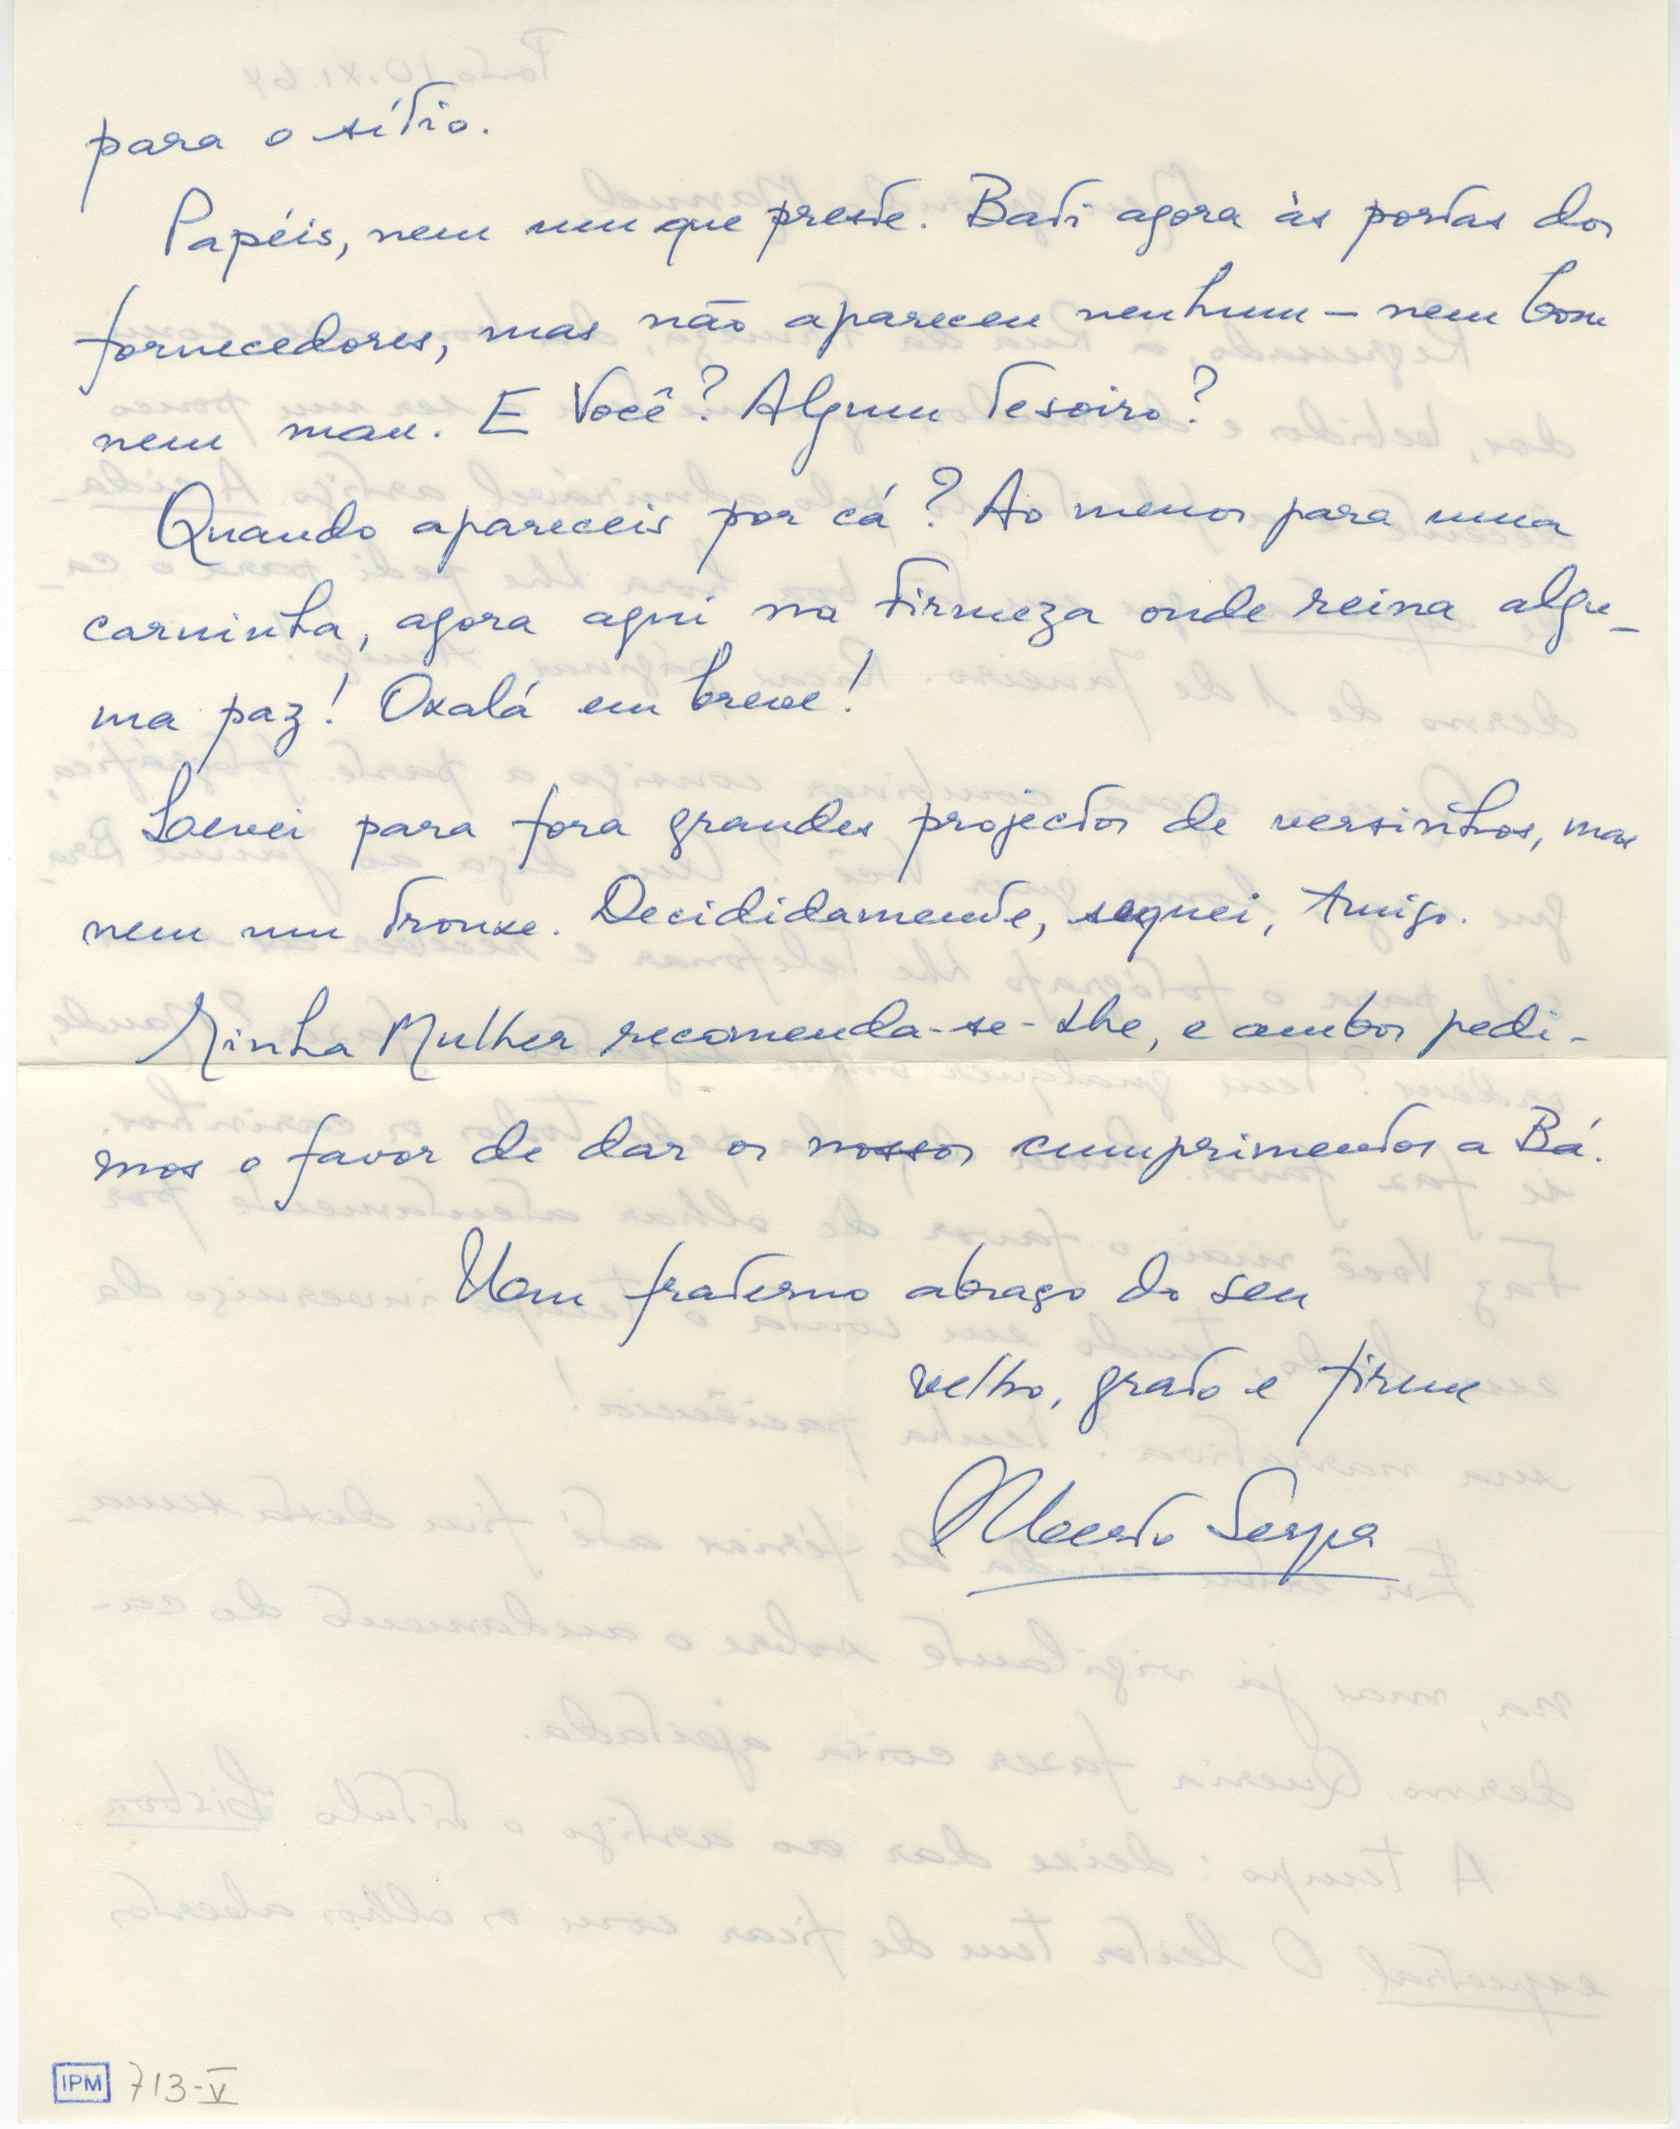 para o sítio.
Papéis, nem um que preste. Bati agora às portas dos
fornecedores, mas não apareceu nenhum – nem bom
nem mau. E Você? Algum tesoiro?
Quando apareceis por cá? Ao menos para uma
carninha, agora aqui na Firmeza onde reina algu-
ma paz! Oxalá em breve!
Levei para fora grandes projectos de versinhos, mas
nem um trouxe. Decididamente, sequei, Amigo.
Minha Mulher recomenda-se-lhe, e ambos pedi-
mos o favor de dar os nossos cumprimentos a Bá.
Um fraterno abraço do seu
velho, grato e firme
Alberto Serpa
IPM 713-V